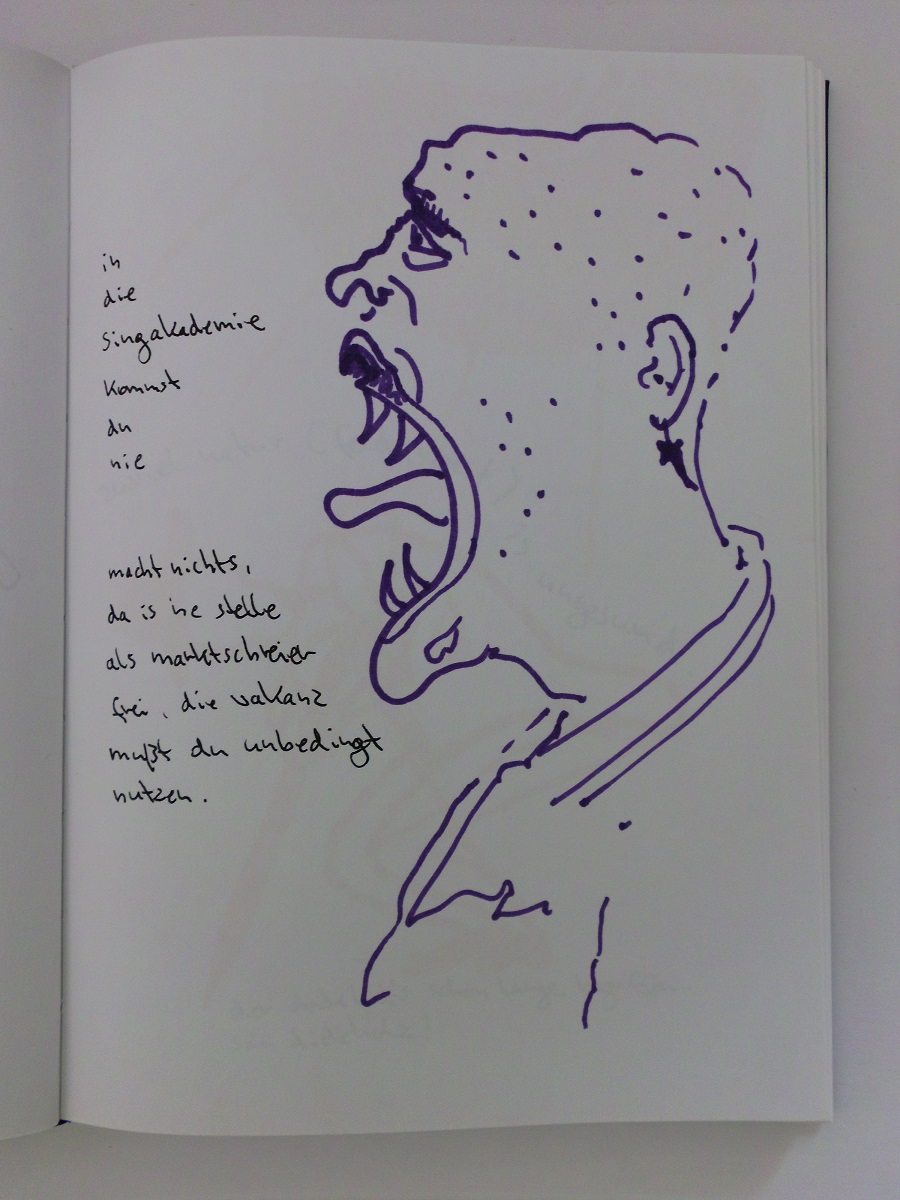 in
die
singakademie
kommst
du
nie
macht nichts,
da is ne stelle
als marktschreier
frei, die vakanz
mußt du unbedingt
nutzen.